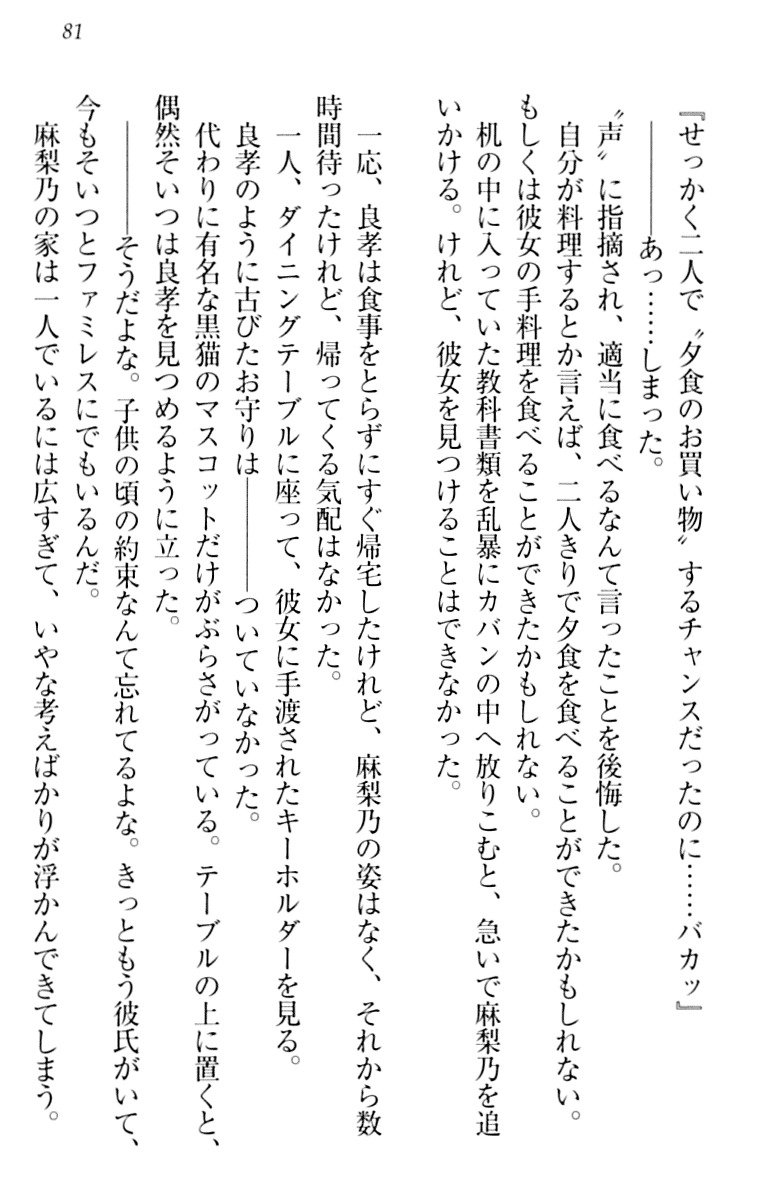 81
『せっかく二人で〝夕食のお買い物〟するチャンスだったのに……バカッ』
――――あっ……しまった。
〝声〟に指摘され、適当に食べるなんて言ったことを後悔した。
自分が料理するとか言えば、二人きりで夕食を食べることができたかもしれない。
もしくは彼女の手料理を食べることができたかもしれない。
机の中に入っていた教科書類を乱暴にカバンの中へ放りこむと、急いで麻梨乃を追
いかける。けれど、彼女を見つけることはできなかった。
一応、良孝は食事をとらずにすぐ帰宅したけれど、麻梨乃の姿はなく、それから数
時間待ったけれど、帰ってくる気配はなかった。
一人、ダイニングテーブルに座って、彼女に手渡されたキーホルダーを見る。
良孝のように古びたお守りは――――ついていなかった。
代わりに有名な黒猫のマスコットだけがぶらさがっている。テーブルの上に置くと、
偶然そいつは良孝を見つめるように立った。
――――そうだよな。子供の頃の約束なんて忘れてるよな。きっともう彼氏がいて、
今もそいつとファミレスにでもいるんだ。
麻梨乃の家は一人でいるには広すぎて、いやな考えばかりが浮かんできてしまう。